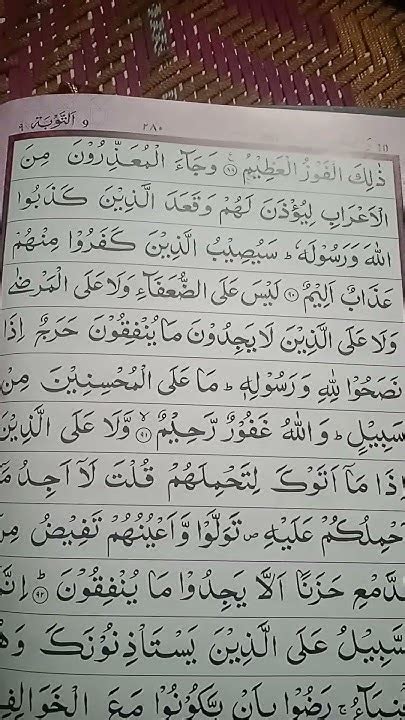 ٩ التَّوْبَة ٩ ٢٨٠ 10
ذٰلِكَ الْفَوْزُ الْعَظِيْمُ ۝ وَجَآءَ الْمُعَذِّرُوْنَ مِنَ
الْاَعْرَابِ لِيُؤْذَنَ لَهُمْ وَقَعَدَ الَّذِيْنَ كَذَبُوا
اللّٰهَ وَرَسُوْلَهٗ ؕ سَيُصِيْبُ الَّذِيْنَ كَفَرُوْا مِنْهُمْ
عَذَابٌ اَلِيْمٌ ۝٩٠ لَيْسَ عَلَى الضُّعَفَآءِ وَلَا عَلَى الْمَرْضٰى
وَلَا عَلَى الَّذِيْنَ لَا يَجِدُوْنَ مَا يُنْفِقُوْنَ حَرَجٌ اِذَا
نَصَحُوْا لِلّٰهِ وَرَسُوْلِهٖ ؕ مَا عَلَى الْمُحْسِنِيْنَ مِنْ
سَبِيْلٍ ؕ وَاللّٰهُ غَفُوْرٌ رَّحِيْمٌ ۝٩١ۙ وَّلَا عَلَى الَّذِيْنَ
اِذَا مَآ اَتَوْكَ لِتَحْمِلَهُمْ قُلْتَ لَآ اَجِدُ مَا
اَحْمِلُكُمْ عَلَيْهِ ۪ تَوَلَّوْا وَّاَعْيُنُهُمْ تَفِيْضُ مِنَ
الدَّمْعِ حَزَنًا اَلَّا يَجِدُوْا مَا يُنْفِقُوْنَ ۝٩٢ؕ اِنَّمَا
السَّبِيْلُ عَلَى الَّذِيْنَ يَسْتَاْذِنُوْنَكَ وَهُمْ
اَغْنِيَآءُ ۚ رَضُوْا بِاَنْ يَّكُوْنُوْا مَعَ الْخَوَالِفِ